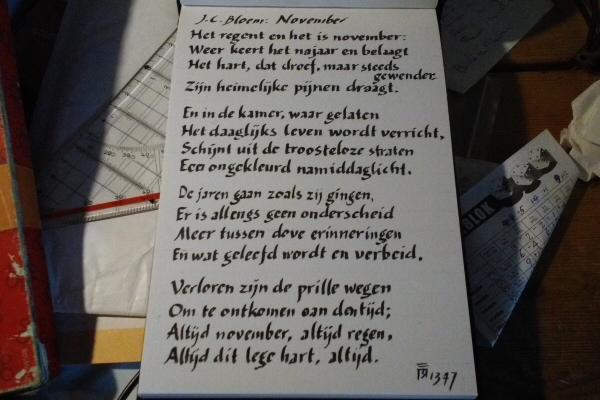 J.C. Bloem: November
Het regent en het is november:
Weer keert het najaar en belaagt
Het hart, dat droef, maar steeds
gewender
Zijn heimelijke pijnen draagt.
En in de kamer, waar gelaten
Het daaglijks leven wordt verricht,
Schijnt uit de troosteloze straten
Een ongekleurd namiddaglicht.
De jaren gaan zoals zij gingen,
Er is allengs geen onderscheid
Meer tussen dove erinneringen
En wat geleefd wordt en verbeid.
Verloren zijn de prille wegen
Om te ontkomen aan den tijd;
Altijd november, altijd regen,
Altijd dit lege hart, altijd.
1347
BLOK